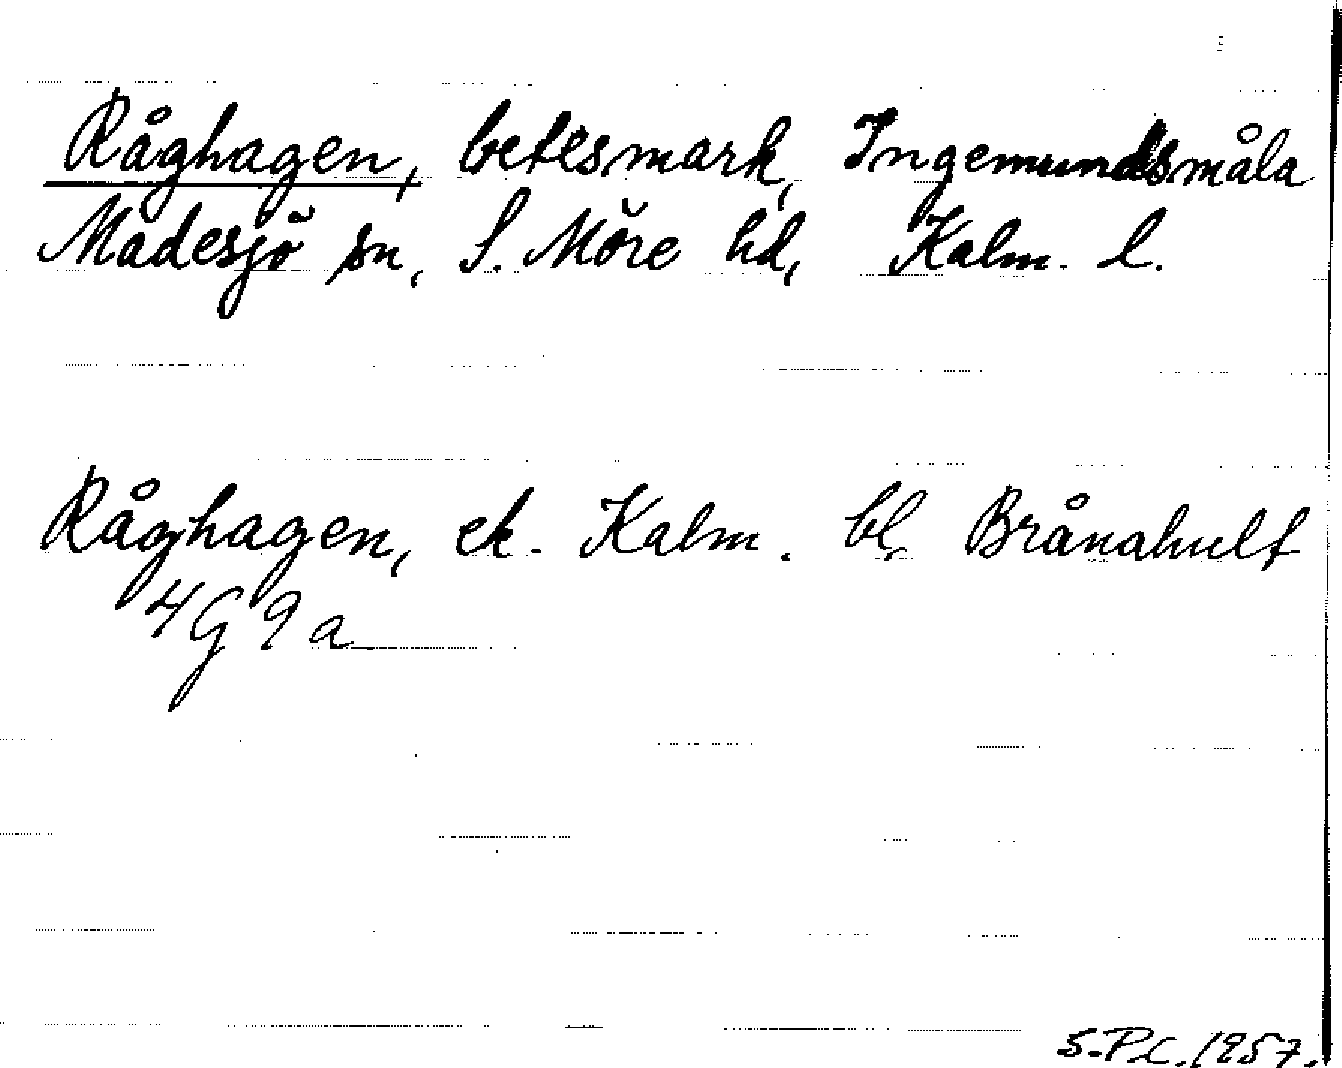 Råghagen, betesmark, Ingemundsmåla
Madesjö sn, S. Möre hd, Kalm. l.
Råghagen, ek. Kalm. bl. Brånahult
4G 9a
S.P.C. 1957.